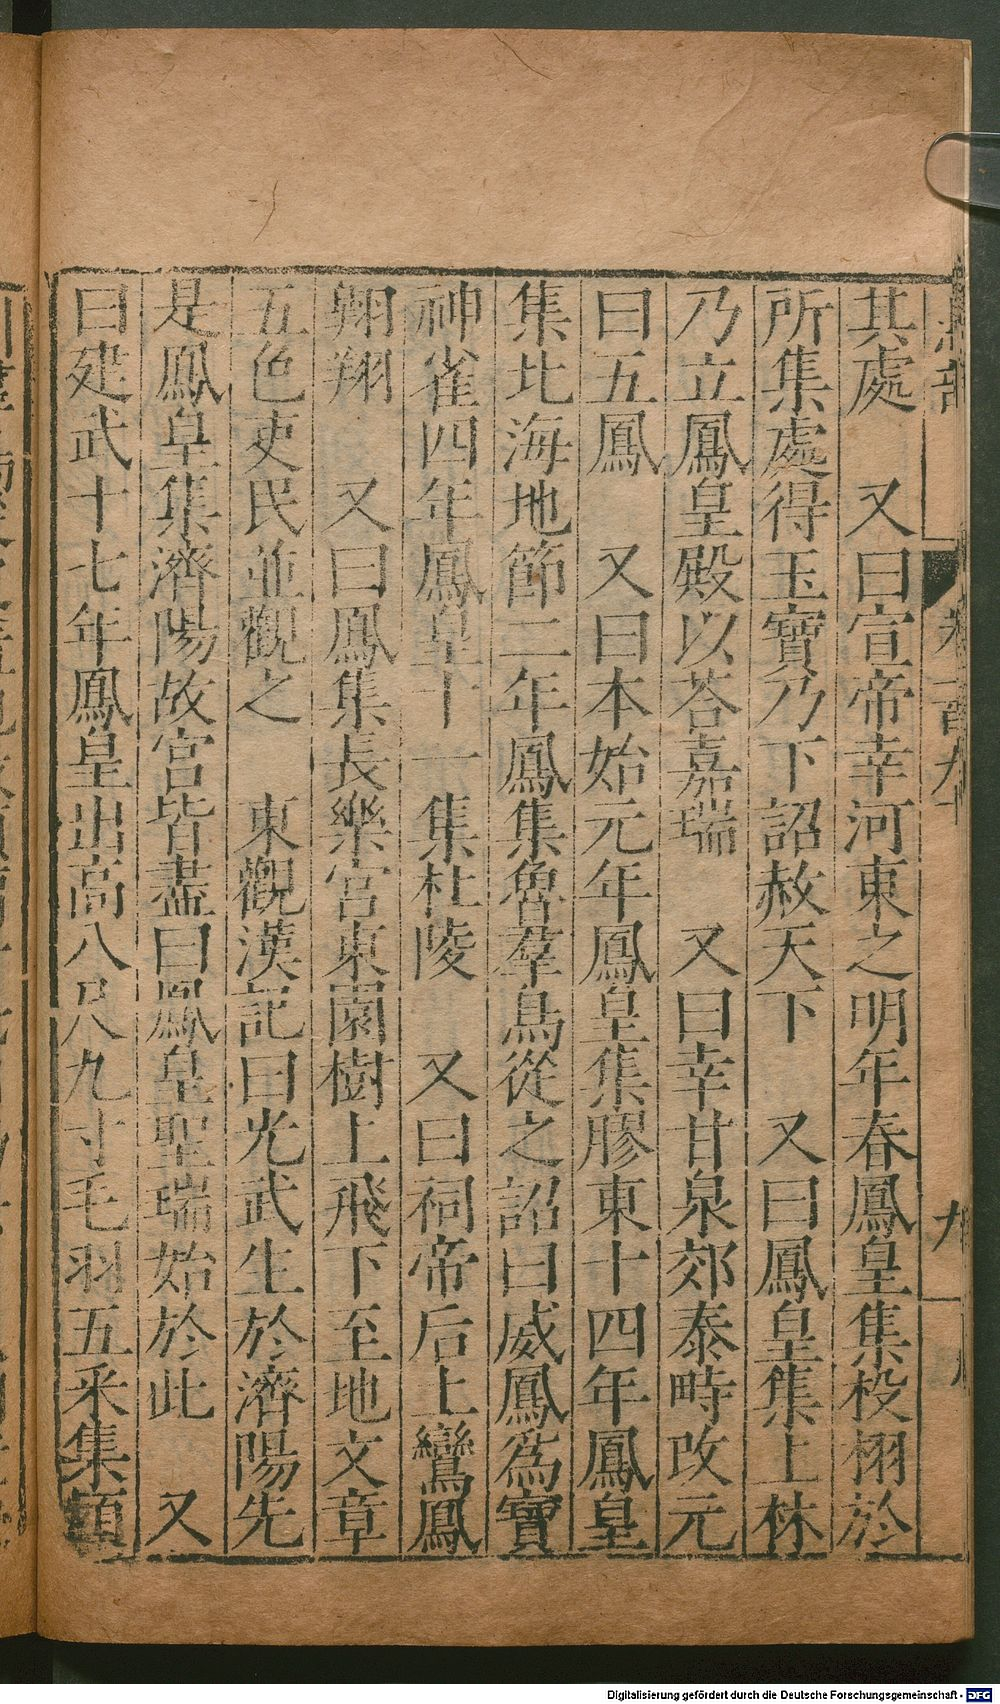 其處　又曰宣帝幸河東之明年春鳳皇集祋栩於
所集處得玉寶乃下詔赦天下　又曰鳳皇集上林
乃立鳳皇殿以荅嘉瑞　又曰幸甘泉郊泰畤改元
曰五鳳　又曰本始元年鳳皇集膠東十四年鳳皇
集北海地節二年鳳集魯羣鳥從之詔曰威鳳爲寶
神雀四年鳳皇十一集杜陵　又曰祠帝后上鸞鳳
翱翔　又曰鳳集長樂宮東園樹上飛下至地文章
五色吏民並觀之　東觀漢記曰光武生於濟陽先
是鳳皇集濟陽故宮皆畫曰鳳皇聖瑞始於此　又
曰建武十七年鳳皇出高八尺九寸毛羽五采集潁
Digitalisierung gefördert durch die Deutsche Forschungsgemeinschaft - DFG